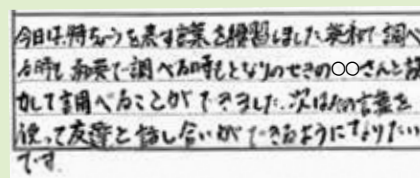 今日は、特ちょうを表す言葉を練習しました。英和で調べ
る時も和英で調べる時もとなりのせきの○○さんと協
力して調べることができました。次はこの言葉を
使って友達と話し合いができるようになりたい
です。